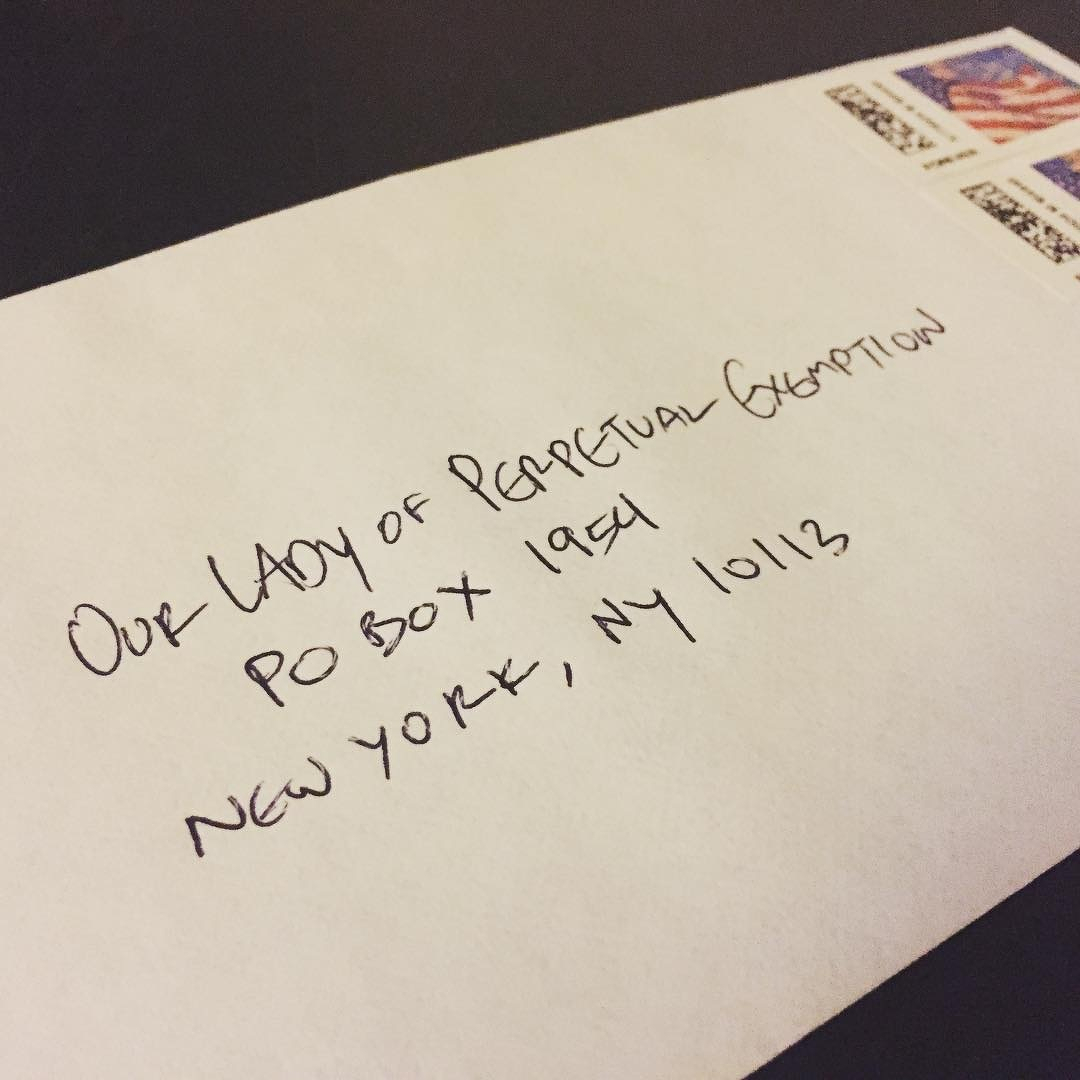 OUR LADY OF PERPETUAL EXEMPTION
PO BOX 1954
NEW YORK, NY 10113